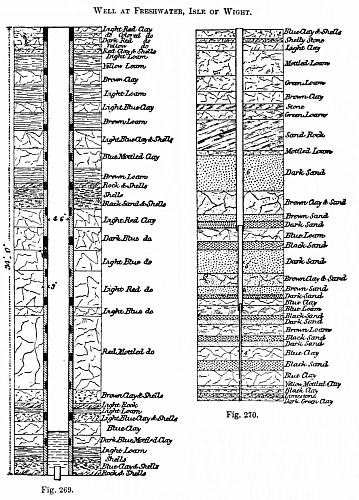 WELL AT FRESHWATER, ISLE OF WIGHT.
Light Red Clay
Do Colored do
Dark Red do
Yellow do
Red Clay & Shells
Light Loam
Yellow Loam
Brown Clay
Light Loam
Light Blue Clay
Brown Loam
Light Blue Clay & Shells
Blue Mottled Clay
Brown Loam
Rock & Shells
Shells
Black Sand & Shells
Light Red Clay
Dark Blue do
Light Blue do
Light Red do
Light Blue do
Red Mottled do
Brown Clay & Shells
Light Rock
Light Loam
Light Blue Clay & Shells
Blue Clay
Dark Blue Mottled Clay
Light Loam
Shells
Blue Clay & Shells
Rock & Shells
4' 6"
3'
Fig. 269.
Blue Clay & Shells
Shelly Stone
Light Clay
Mottled Loam
Green Loam
Brown Clay
Stone
Green Loam
Sand Rock
Mottled Loam
Dark Sand
Brown Clay & Sand
Brown Sand
Dark Sand
Blue Loam
Black Sand
Dark Sand
Brown Clay & Sand
Brown Sand
Dark Sand
Blue Clay
Blue Loam
Black Sand
Dark Sand
Brown Loam
Black Sand
Dark Sand
Blue Clay
Black Sand
Blue Clay
Yellow Mottled Clay
Black Clay
Limestone
Dark Green Clay
Fig. 270.